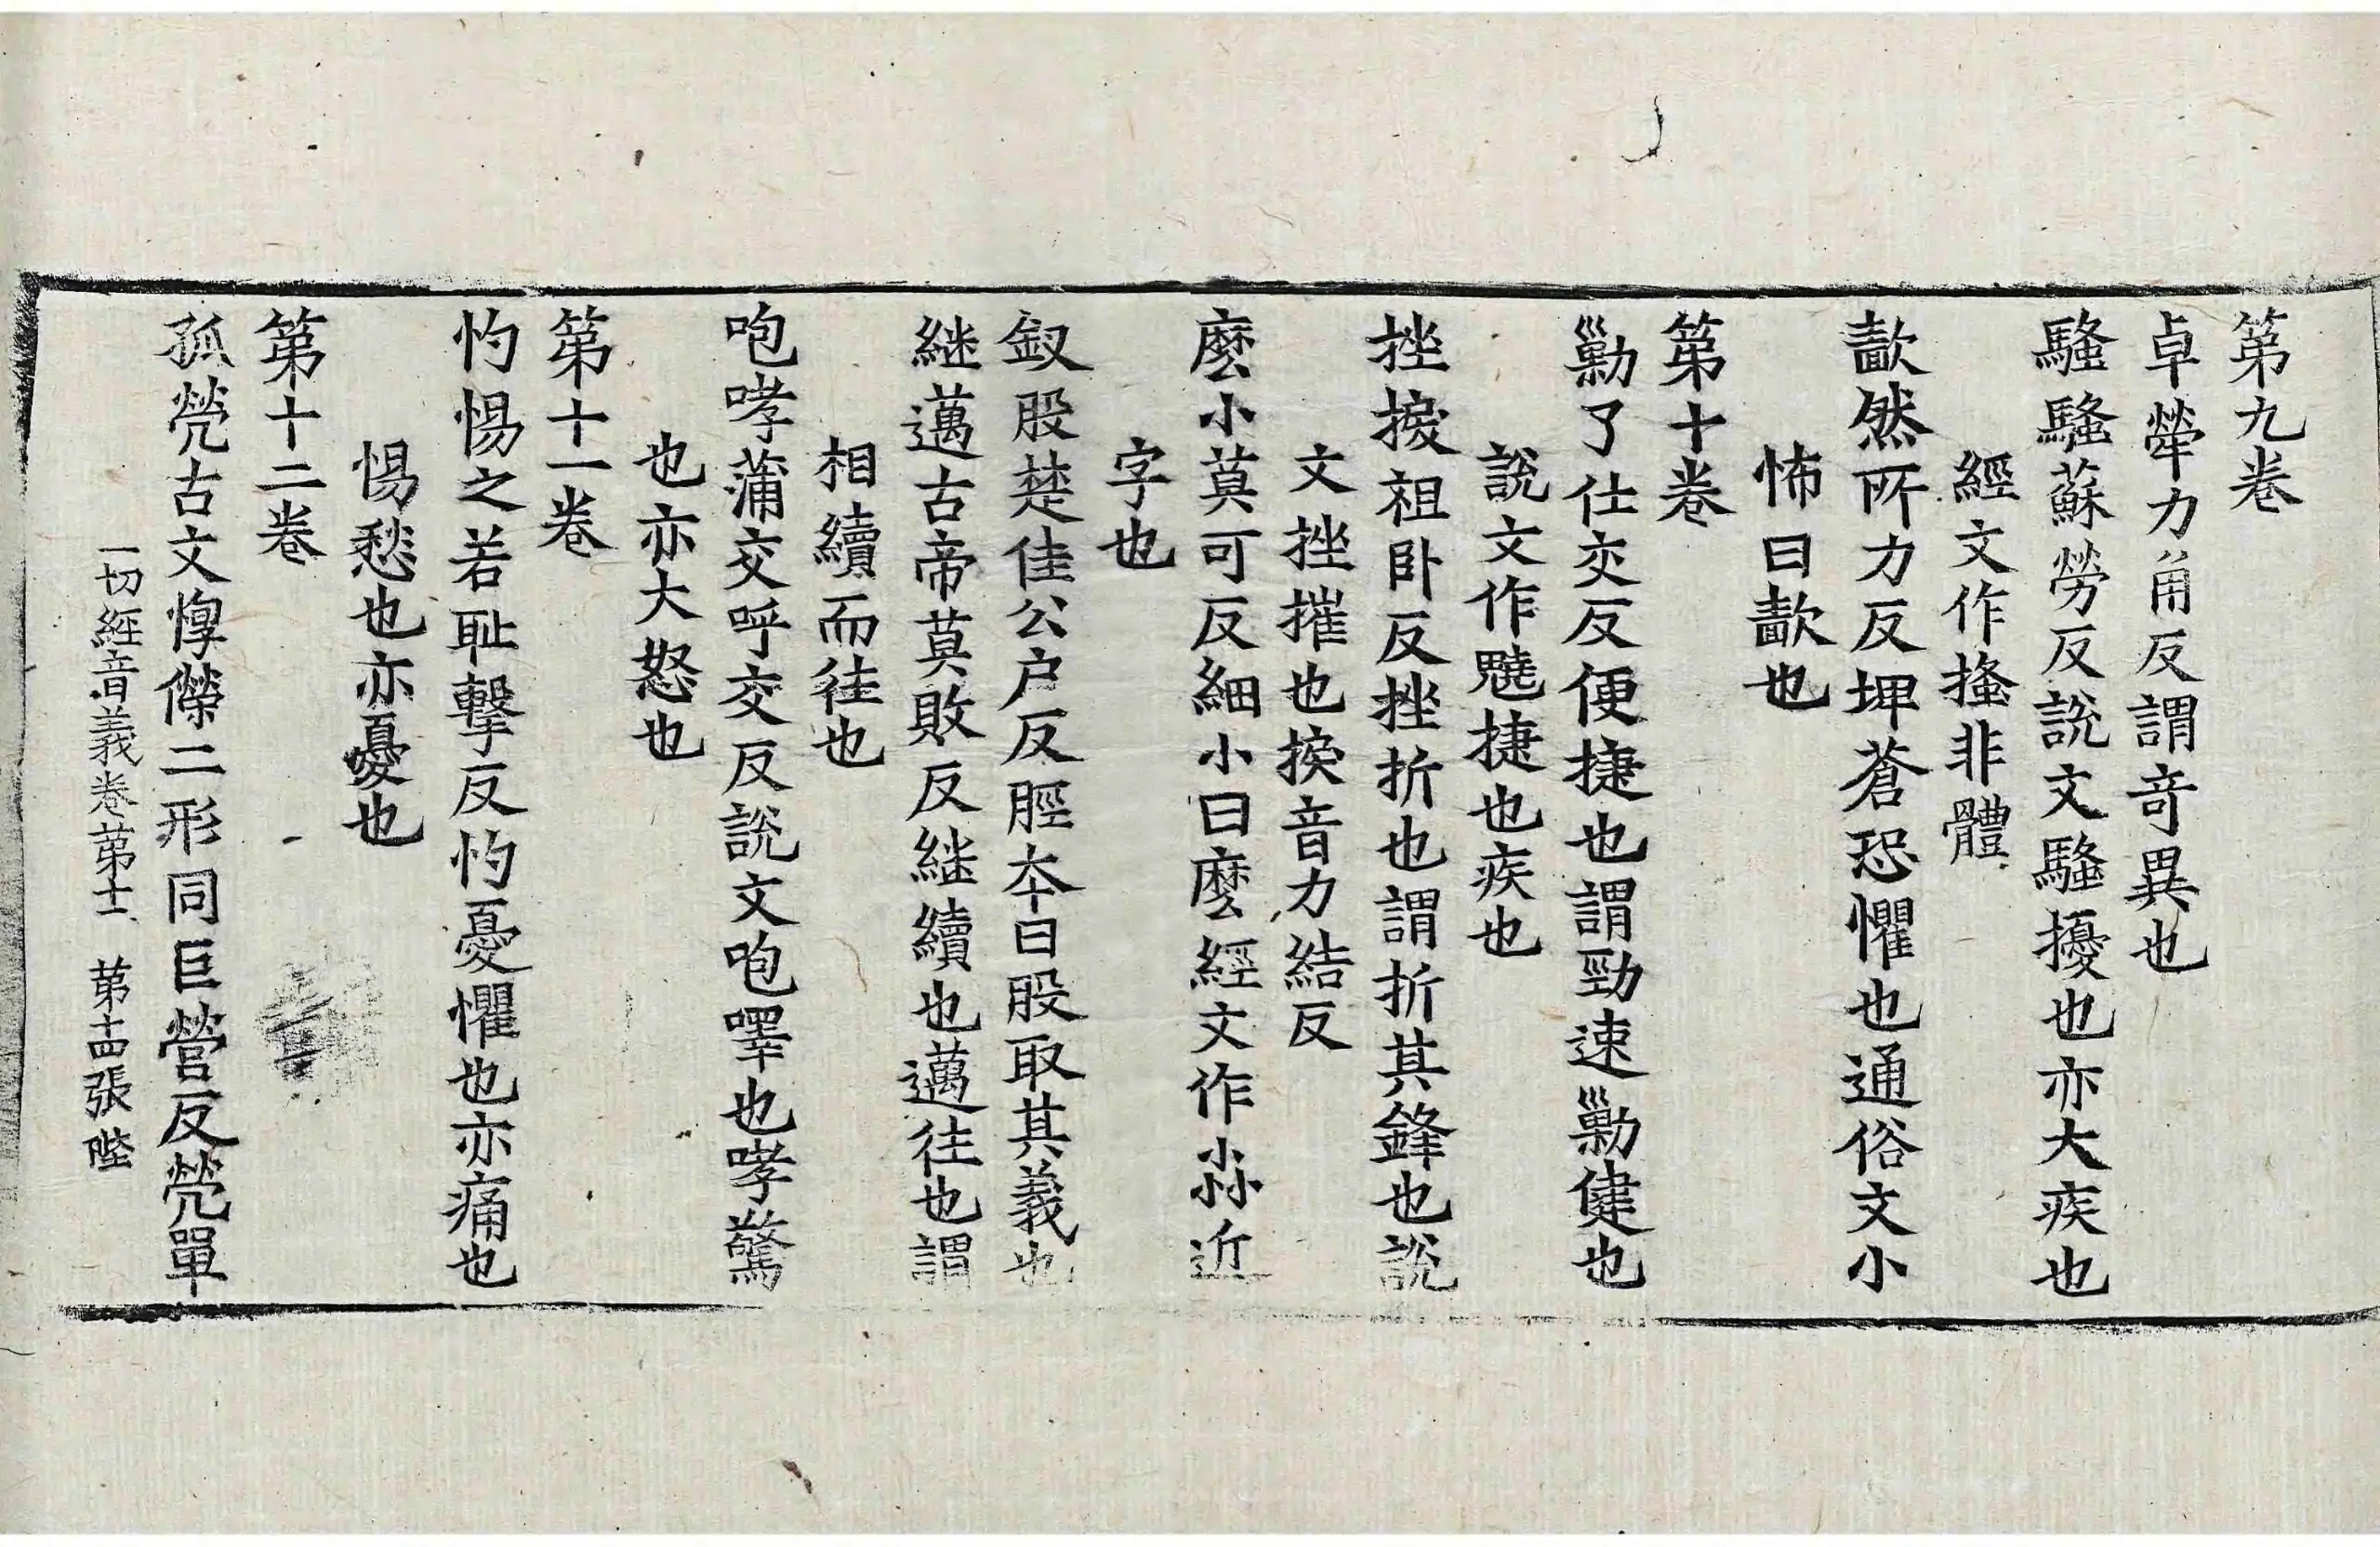 第九卷
卓犖力角反謂竒異也
騷騷蘇勞反説文騷擾也亦大疾也
經文作搔非體
歗然所力反埤蒼恐懼也通俗文小
怖曰歗也
第十卷
勦了仕交反便捷也謂勁速勦健也
説文作魑捷也疾也
挫捩祖卧反挫折也謂折其鋒也説
文挫摧也捩音力結反
麼小莫可反細小曰麼經文作尛近
字也
釵股楚佳公户反脛夲曰股取其義也
継邁古帝莫敗反継續也邁往也謂
相續而徃也
咆哮蒲交呼交反説文咆嘷也哮驚
也亦大怒也
第十一卷
忉惕之若耻擊反忉憂懼也亦痛也
惕愁也亦憂也
第十二卷
孤煢古文惸㒦二形同巨營反煢單
一切經音義卷苐十二 苐十四張 陛